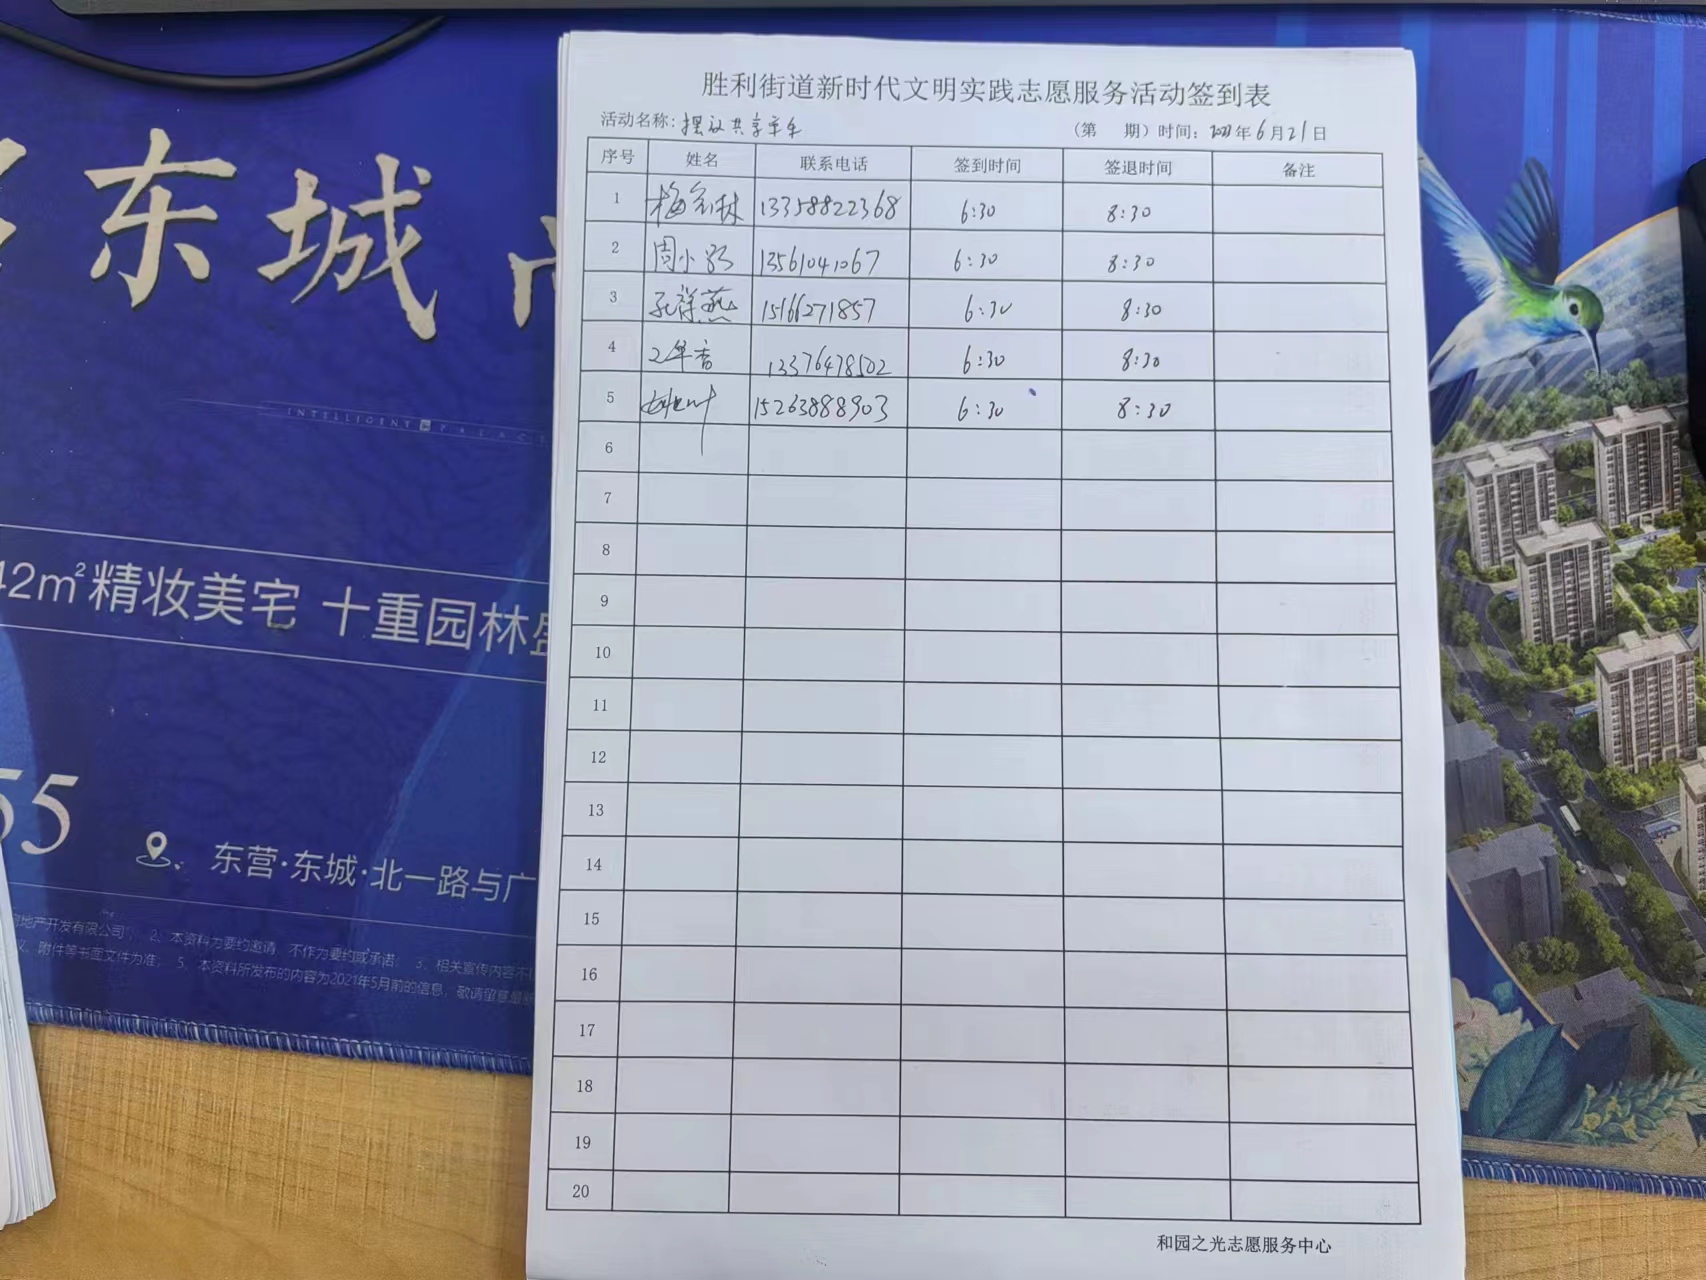 胜利街道新时代文明实践志愿服务活动签到表
活动名称：摆放共享单车 （第 期）时间：2023年6月21日
序号 姓名 联系电话 签到时间 签退时间 备注
1 13358822368 6:30 8:30
2 周小 13561041067 6:30 8:30
3 孔祥燕 15166271857 6:30 8:30
4 13376478502 6:30 8:30
5 15263888903 6:30 8:30
6
7
8
9
10
11
12
13
14
15
16
17
18
19
20
和园之光志愿服务中心
东城
INTELLIGENT PALACE
42m²精妆美宅 十重园林
55
东营·东城·北一路与广
房地产开发有限公司； 2、本资料为要约邀请，不作为要约或承诺； 3、相关宣传内容不
议、附件等书面文件为准； 5、本资料所发布的内容为2021年5月前的信息，敬请留意最新